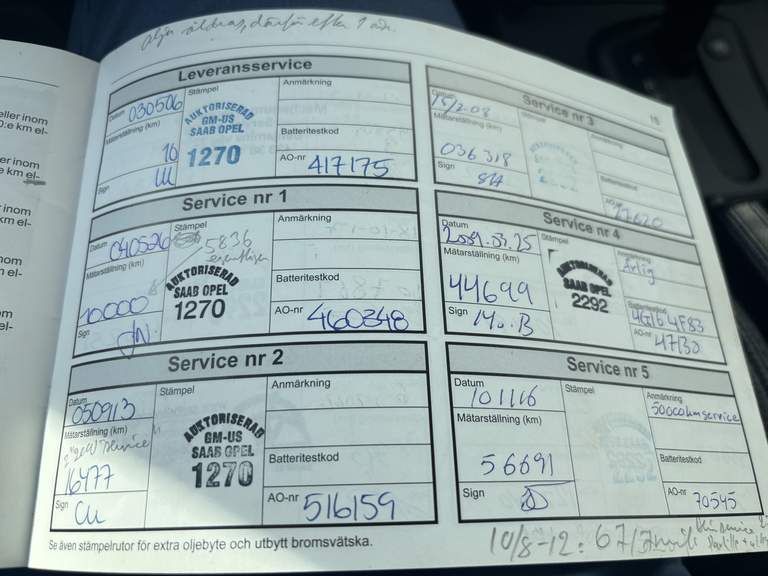 Olja
efter 1 år.
eller inom
0:e km el-
er inom
e km el-
inom
km el-
nom
n el-
m
el-
Leveransservice
Datum
030506
Stämpel
AUKTORISERAD
GM-US
SAAB OPEL
1270
Anmärkning
Mätarställning (km)
16
Batteritestkod
Sign
CU
AO-nr 417175
Service nr 1
Datum
040526
Stämpel
5836
egentligen
AUKTORISERAD
SAAB OPEL
1270
Anmärkning
Mätarställning (km)
10000
Batteritestkod
Sign
AO-nr 460348
Service nr 2
Datum
050913
Stämpel
AUKTORISERAD
GM-US
SAAB OPEL
1270
Anmärkning
Mätarställning (km)
16477
Batteritestkod
Sign
CU
AO-nr 516159
Se även stämpelrutor för extra oljebyte och utbytt bromsvätska.
Service nr 3
Datum
15/2-08
Stämpel
Anmärkning
Mätarställning (km)
036318
Batteritestkod
Sign
AO-nr
27620
Service nr 4
Datum
2009.03.25
Stämpel
AUKTORISERAD
SAAB OPEL
2292
Anmärkning
Årlig
Mätarställning (km)
44699
Batteritestkod
4G164F83
Sign
Mo.B
AO-nr
47130
Service nr 5
Datum
101116
Stämpel
2292
Anmärkning
5000mservice
Mätarställning (km)
56691
Batteritestkod
Sign
AO-nr 70545
10/8-12: 67